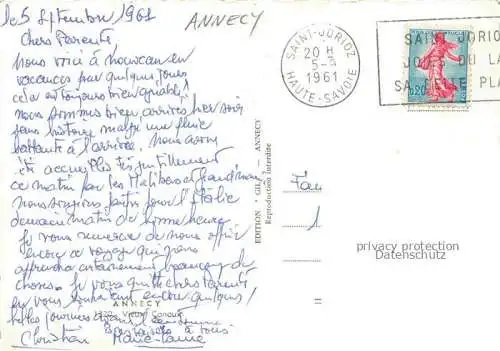 le 5 Septembre 1961
ANNECY
Chers Parents
Nous voici à nouveau en
vacances pour quelques jours
cela est toujours bien agréable!
nous sommes bien arrivés hier soir
sans histoire malgré une pluie
battante à l'arrivée. Nous avons
été accueillis très gentillement
ce matin par les et
nous partir pour l'Italie
demain matin de bonne heure
Je vous remercie de nous offrir
encore ce voyage qui
apprendra certainement beaucoup de
choses. Je vous quitte chers parents
en vous souhaitant encore quelques
belles journées
à tous
Christian Marie-Laure
ANNECY
Vieux Canaux
EDITION "GIL" - ANNECY
Reproduction interdite
SAINT-JORIOZ
20 H
5-9
1961
HAUTE-SAVOIE
SAINT JORIO
DU LA
SA BELLE PLA
0,20
Fau
1
privacy protection
Datenschutz